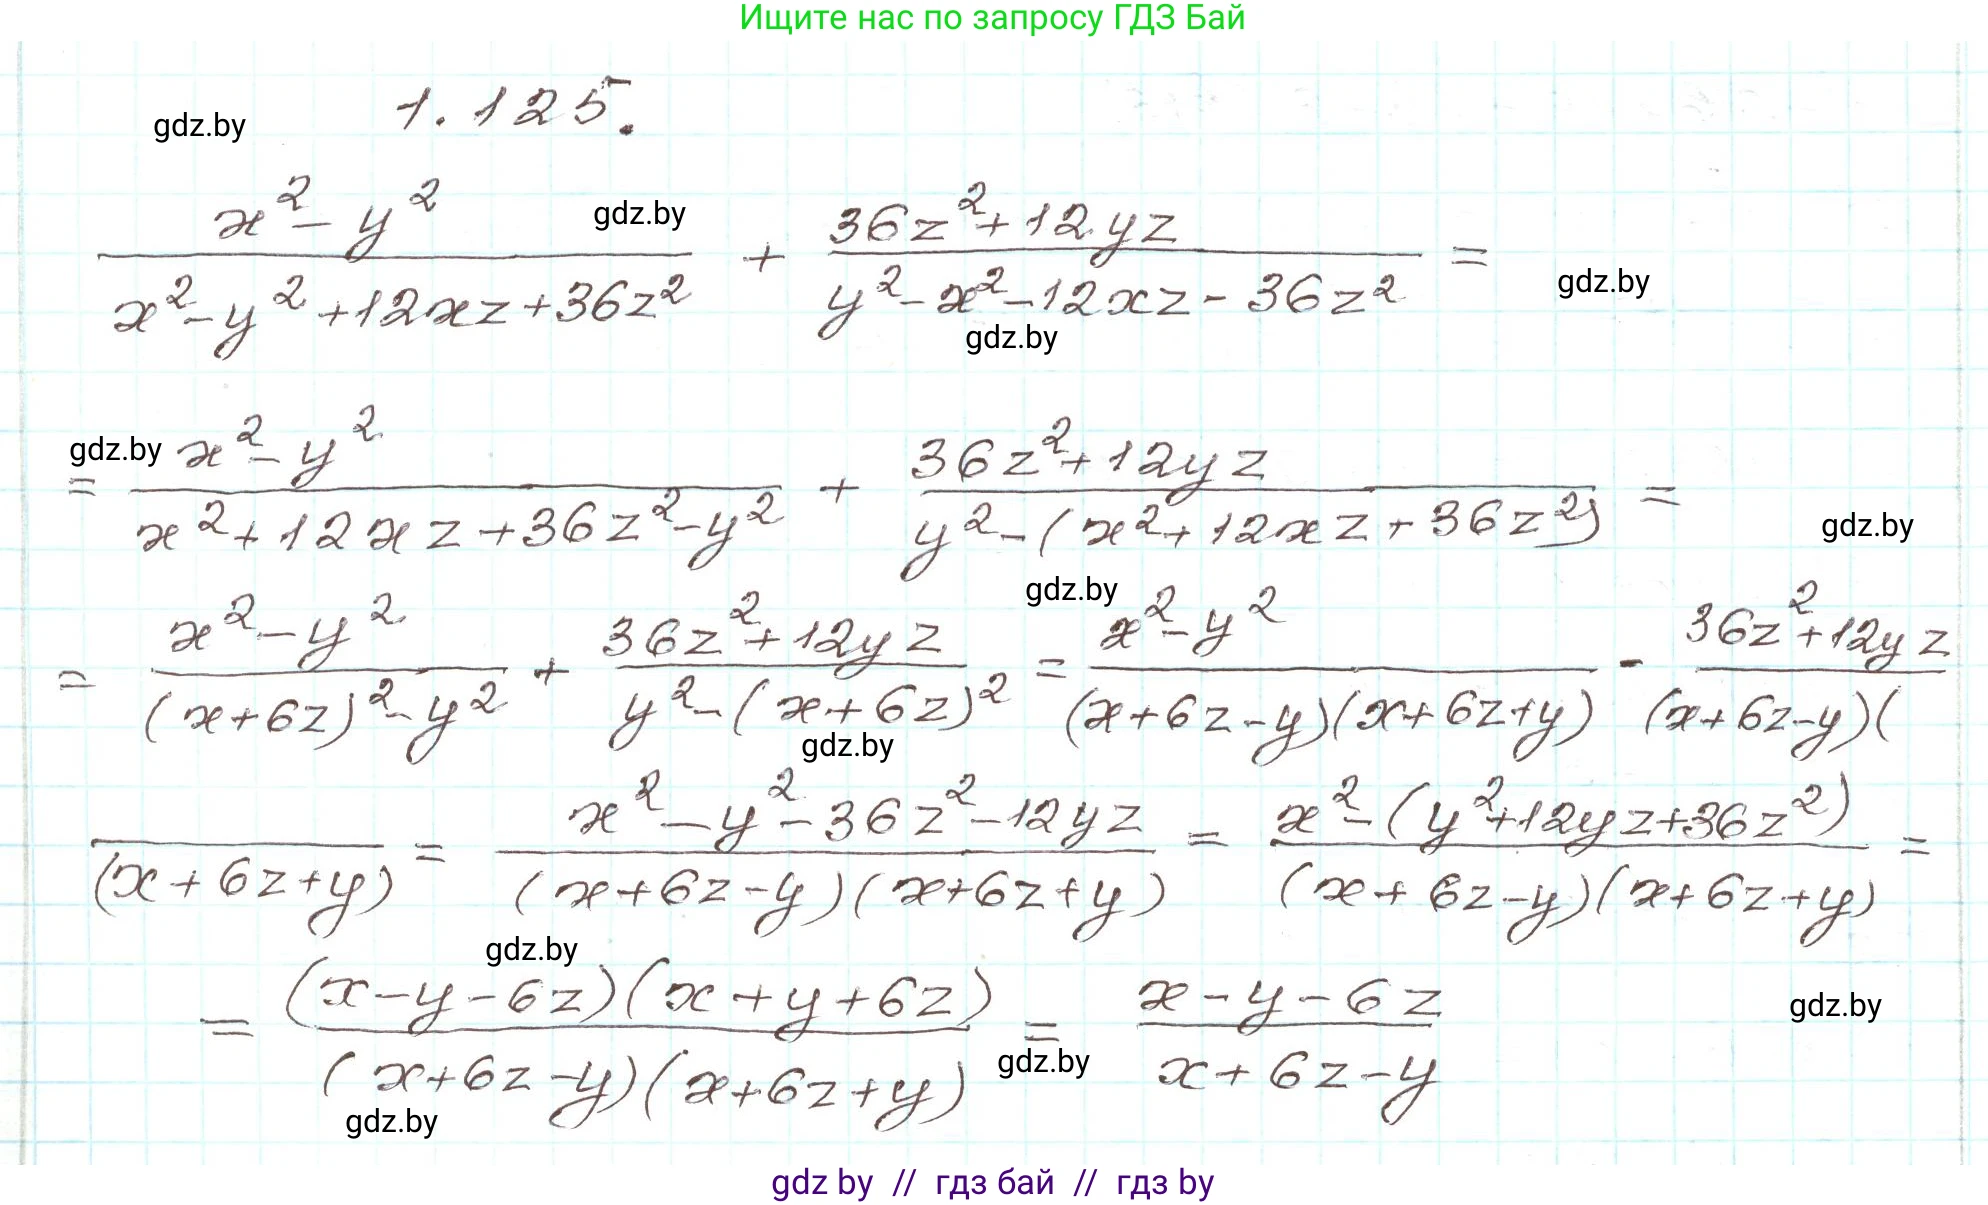 Ищите нас по запросу ГДЗ Бай
gdz.by
1.125.
gdz.by
(x² - y²)/(x² - y² + 12xz + 36z²) + (36z² + 12yz)/(y² - x² - 12xz - 36z²) =
gdz.by
gdz.by
gdz.by
= (x² - y²)/(x² + 12xz + 36z² - y²) + (36z² + 12yz)/(y² - (x² + 12xz + 36z²)) =
gdz.by
gdz.by
= (x² - y²)/((x+6z)² - y²) + (36z² + 12yz)/(y² - (x+6z)²) = (x² - y²)/((x+6z-y)(x+6z+y)) - (36z² + 12yz)/((x+6z-y)(
gdz.by
/(x+6z+y)) = (x² - y² - 36z² - 12yz)/((x+6z-y)(x+6z+y)) = (x² - (y² + 12yz + 36z²))/((x+6z-y)(x+6z+y)) =
gdz.by
= ((x-y-6z)(x+y+6z))/((x+6z-y)(x+6z+y)) = (x-y-6z)/(x+6z-y)
gdz.by
gdz.by
gdz.by
gdz by // гдз бай // гдз by